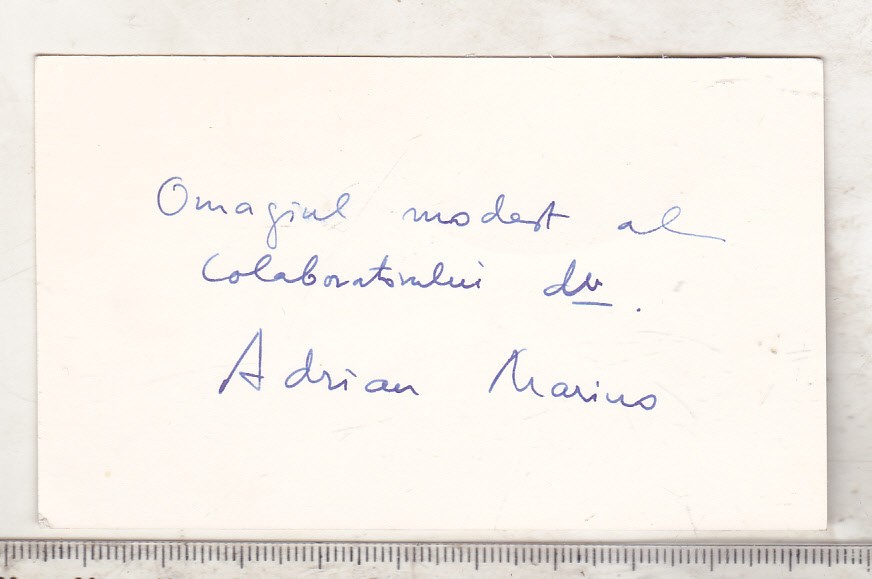 Omagiul modest al
Colaboratorului dv.
Adrian Marino